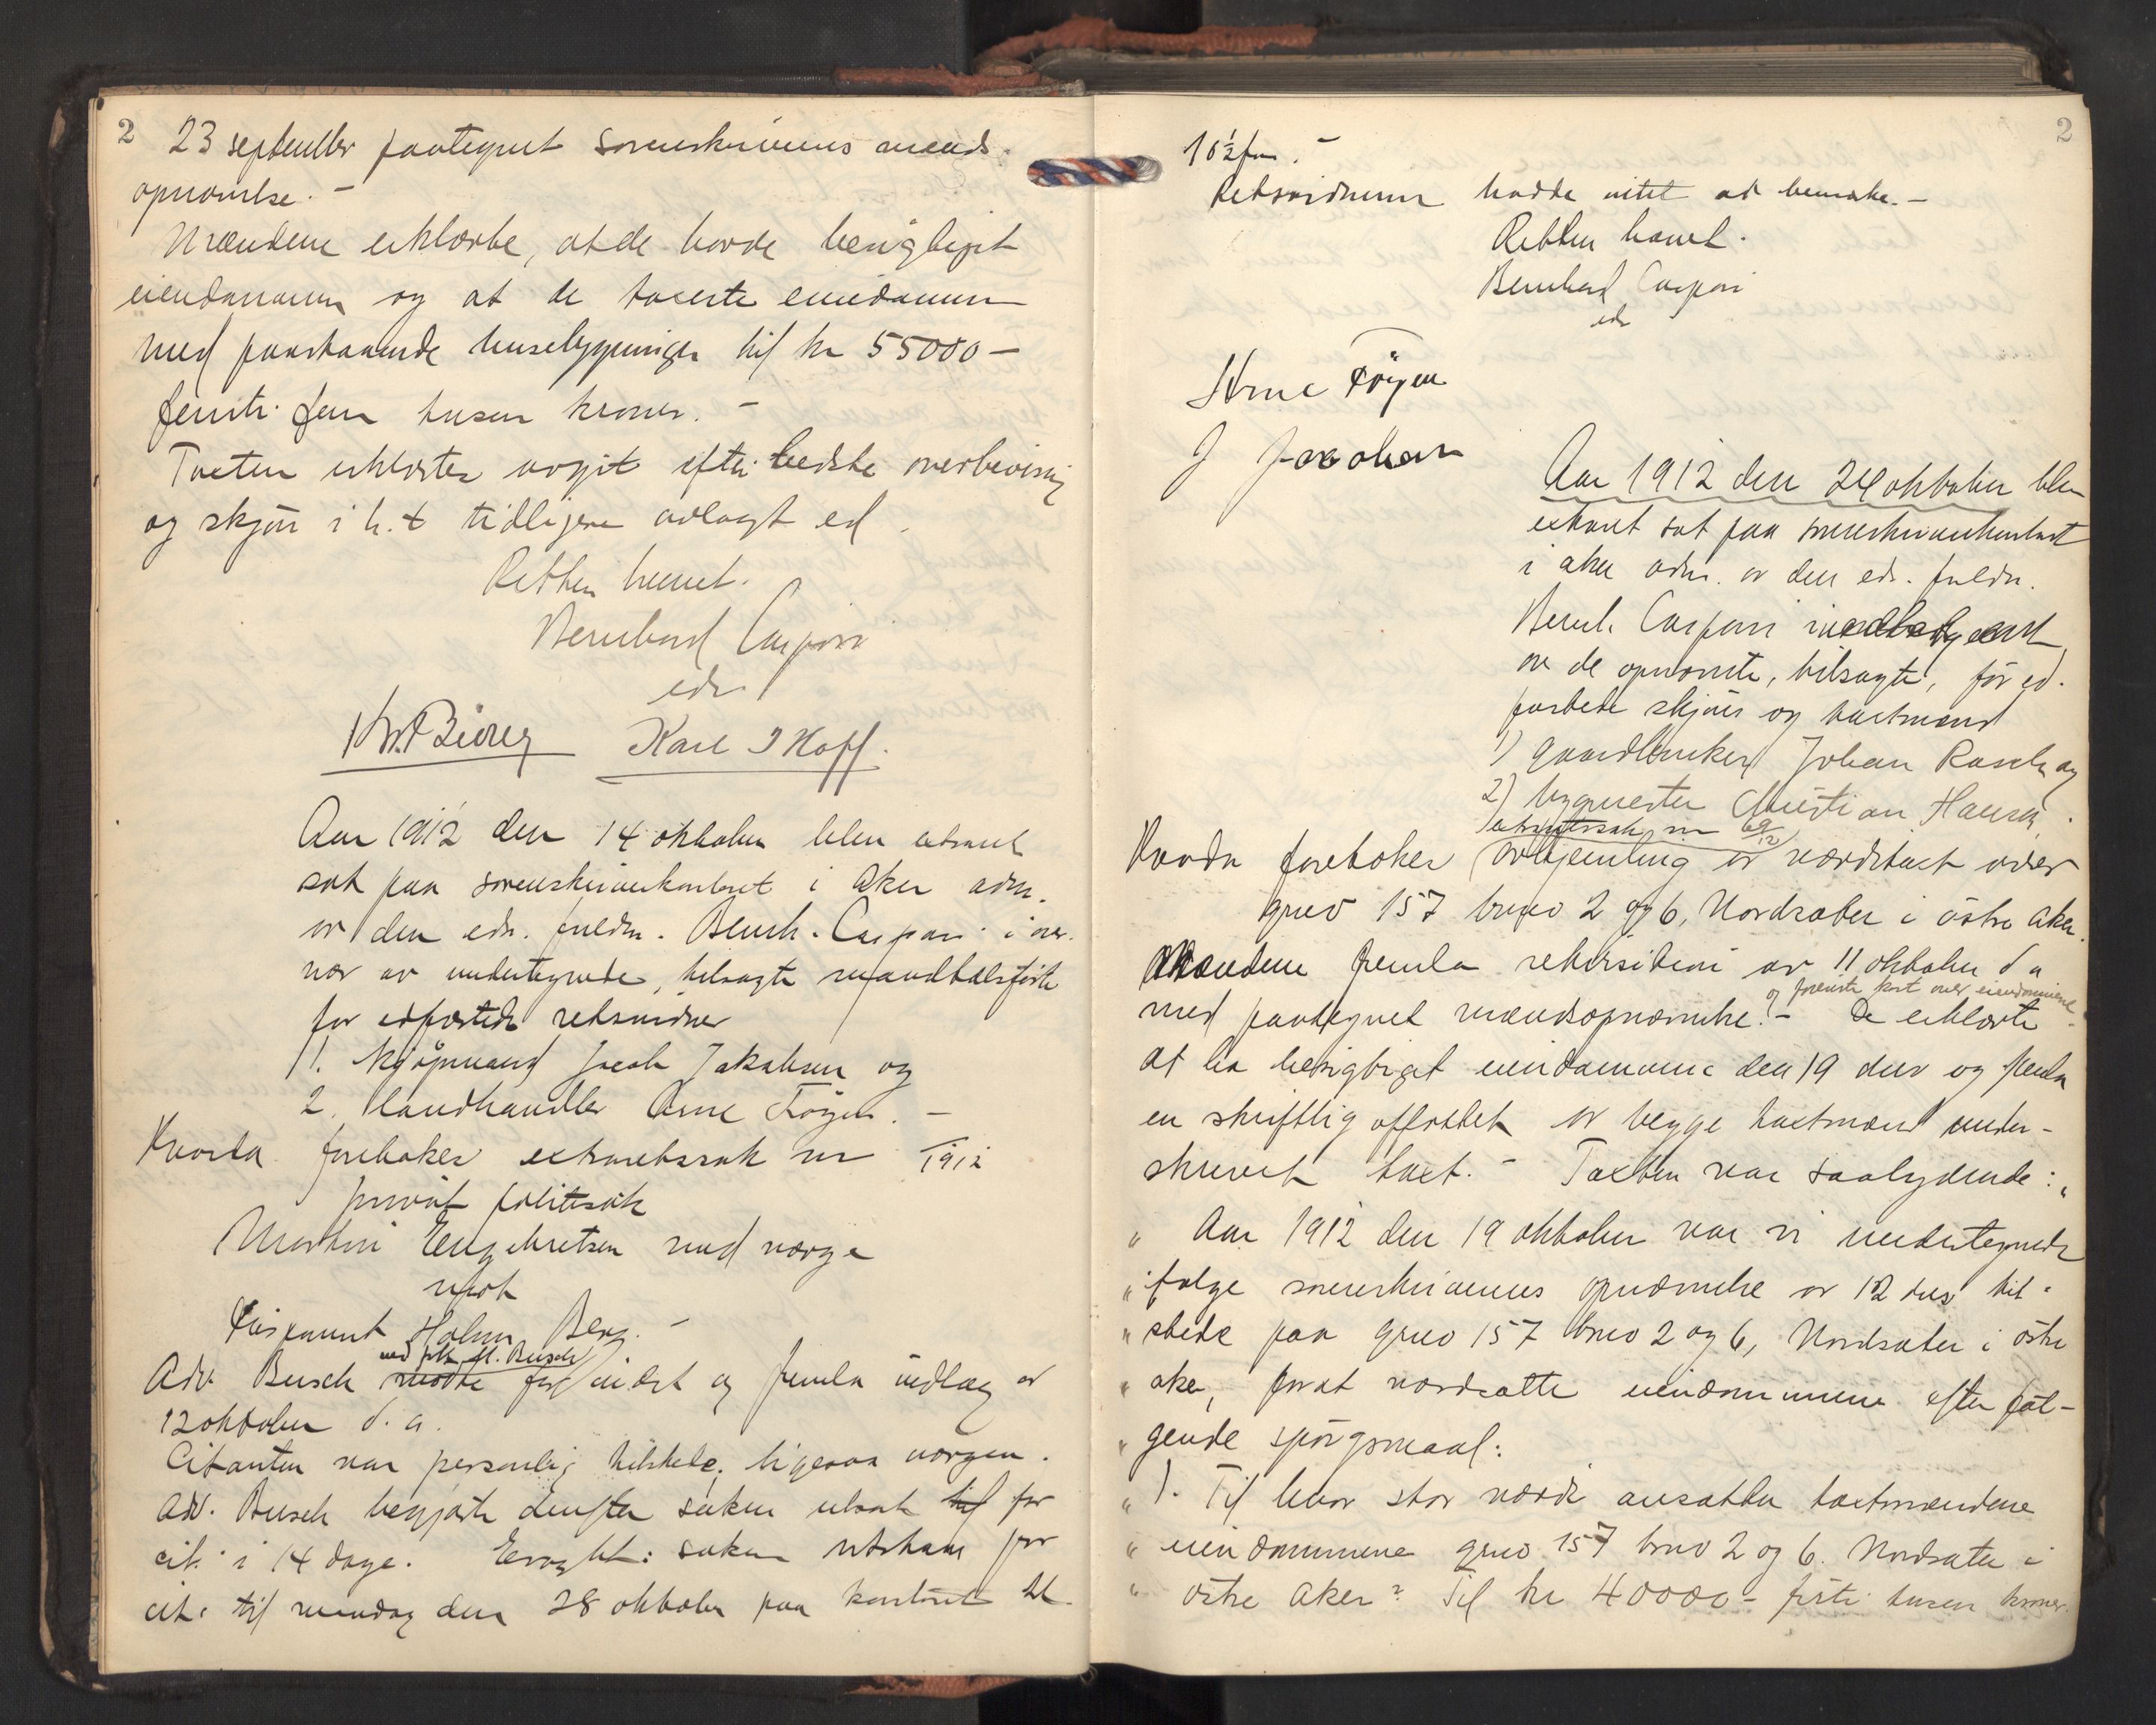 2 23 september paategnet sorenskriverens mænds-
opnævnelse. -
Mændene erklærte, at de havde besigtiget
eiendommen og at de taxerte eiendommen
med paastaaende husebygninger til kr 55000 -
femti fem tusen kroner. -
Taxten erklærtes avgit efter bedste overbevisning
og skjøn i h. t tidligere avlagt ed.
Retten hævet.
Bernhard Caspari
edsv
Karl J Hoff.
Aar 1912 den 14 oktober blev extraret
sat paa sorenskriverkontoret i Aker adm.
av den eds. fuldm. Bernh. Caspari i over-
vær av undertegnede, tilsagte mandtalsførte
før edfæstede retsvidner
1. Kjøpmand Jacob Jakobsen og
2. Landhandler Arne Føyen. -
Hvorda foretokes extraretssak nr /1912
privat politisak
Martin Engebretsen med værge
mot
Disponent Holm Berg. -
ved fuldm. Busch
Adv. Busch møtte for indst og fremla indlæg av
12 oktober d. a.
Citanten var personlig tilstede, ligesaa værgen.
Adv. Busch begjærte derefter saken utsat til for
cit. i 14 dage. Eragtet: saken utstaar for
cit. til mandag den 28 oktober paa kontoret kl.
2
10 1/2 fm. -
Retsvidnerne hadde intet at bemerke. -
Retten hævet.
Bernhard Caspari
edsv
Arne Føyen
J Jacobsen
Aar 1912 den 24 oktober blev
extraret sat paa sorenskriverkontoret
i Aker adm. av den eds. fuldm.
Bernh. Caspari
av de opnævnte, tilsagte, før ed-
fæstede skjøns og taxtmænd
1) gaardbruker Johan Rasch og
2) bygmester Christian Hansen.
extraretssak nr 69/12
Hvorda foretokes avhjemling av værditaxt over
grno 157 brno 2 og 6, Nordsæter i østre Aker.
Mændene fremla rekvisition av 11 oktober d a
og forrige taxt over eiendommene
med paategnet mændsopnævnelse. - De erklærte
at ha besigtiget eiendommene den 19 ds og fremla
en skriftlig affattet av begge taxtmænd under-
skrevet taxt. - Taxten var saalydende: "
" Aar 1912 den 19 oktober var vi undertegnede
" ifølge sorenskriverens opnævnelse av 12 ds til-
" stede paa grno 157 brno 2 og 6, Nordsæter i østre
" aker, forat værdsætte eiendommene efter føl-
" gende spørgsmaal:
" 1. Til hvor stor værdi ansætter taxtmændene
" eiendommene grno 157 brno 2 og 6. Nordsæter i
" østre Aker? Til kr 40000 - firti tusen kroner.